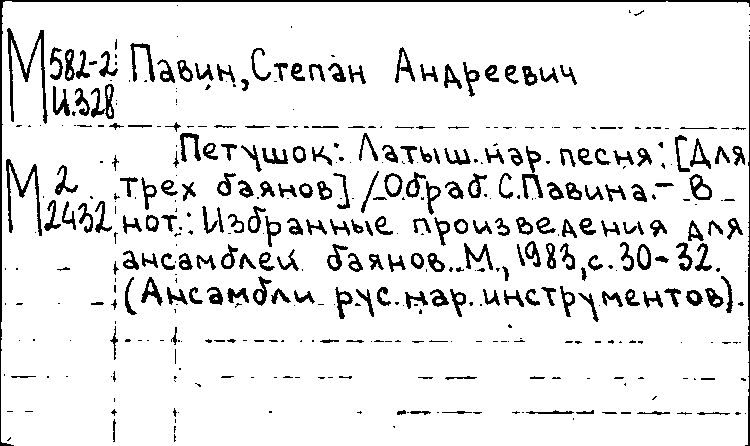 М 582-2 Павин, Степан Андреевич
И.328
Петушок: Латыш. нар. песня: [Для
М 2 трех баянов] / Обраб. С. Павина. – В
2432 нот.: Избранные произведения для
ансамблей баянов. М., 1983, с. 30-32.
(Ансамбли рус. нар. инструментов).